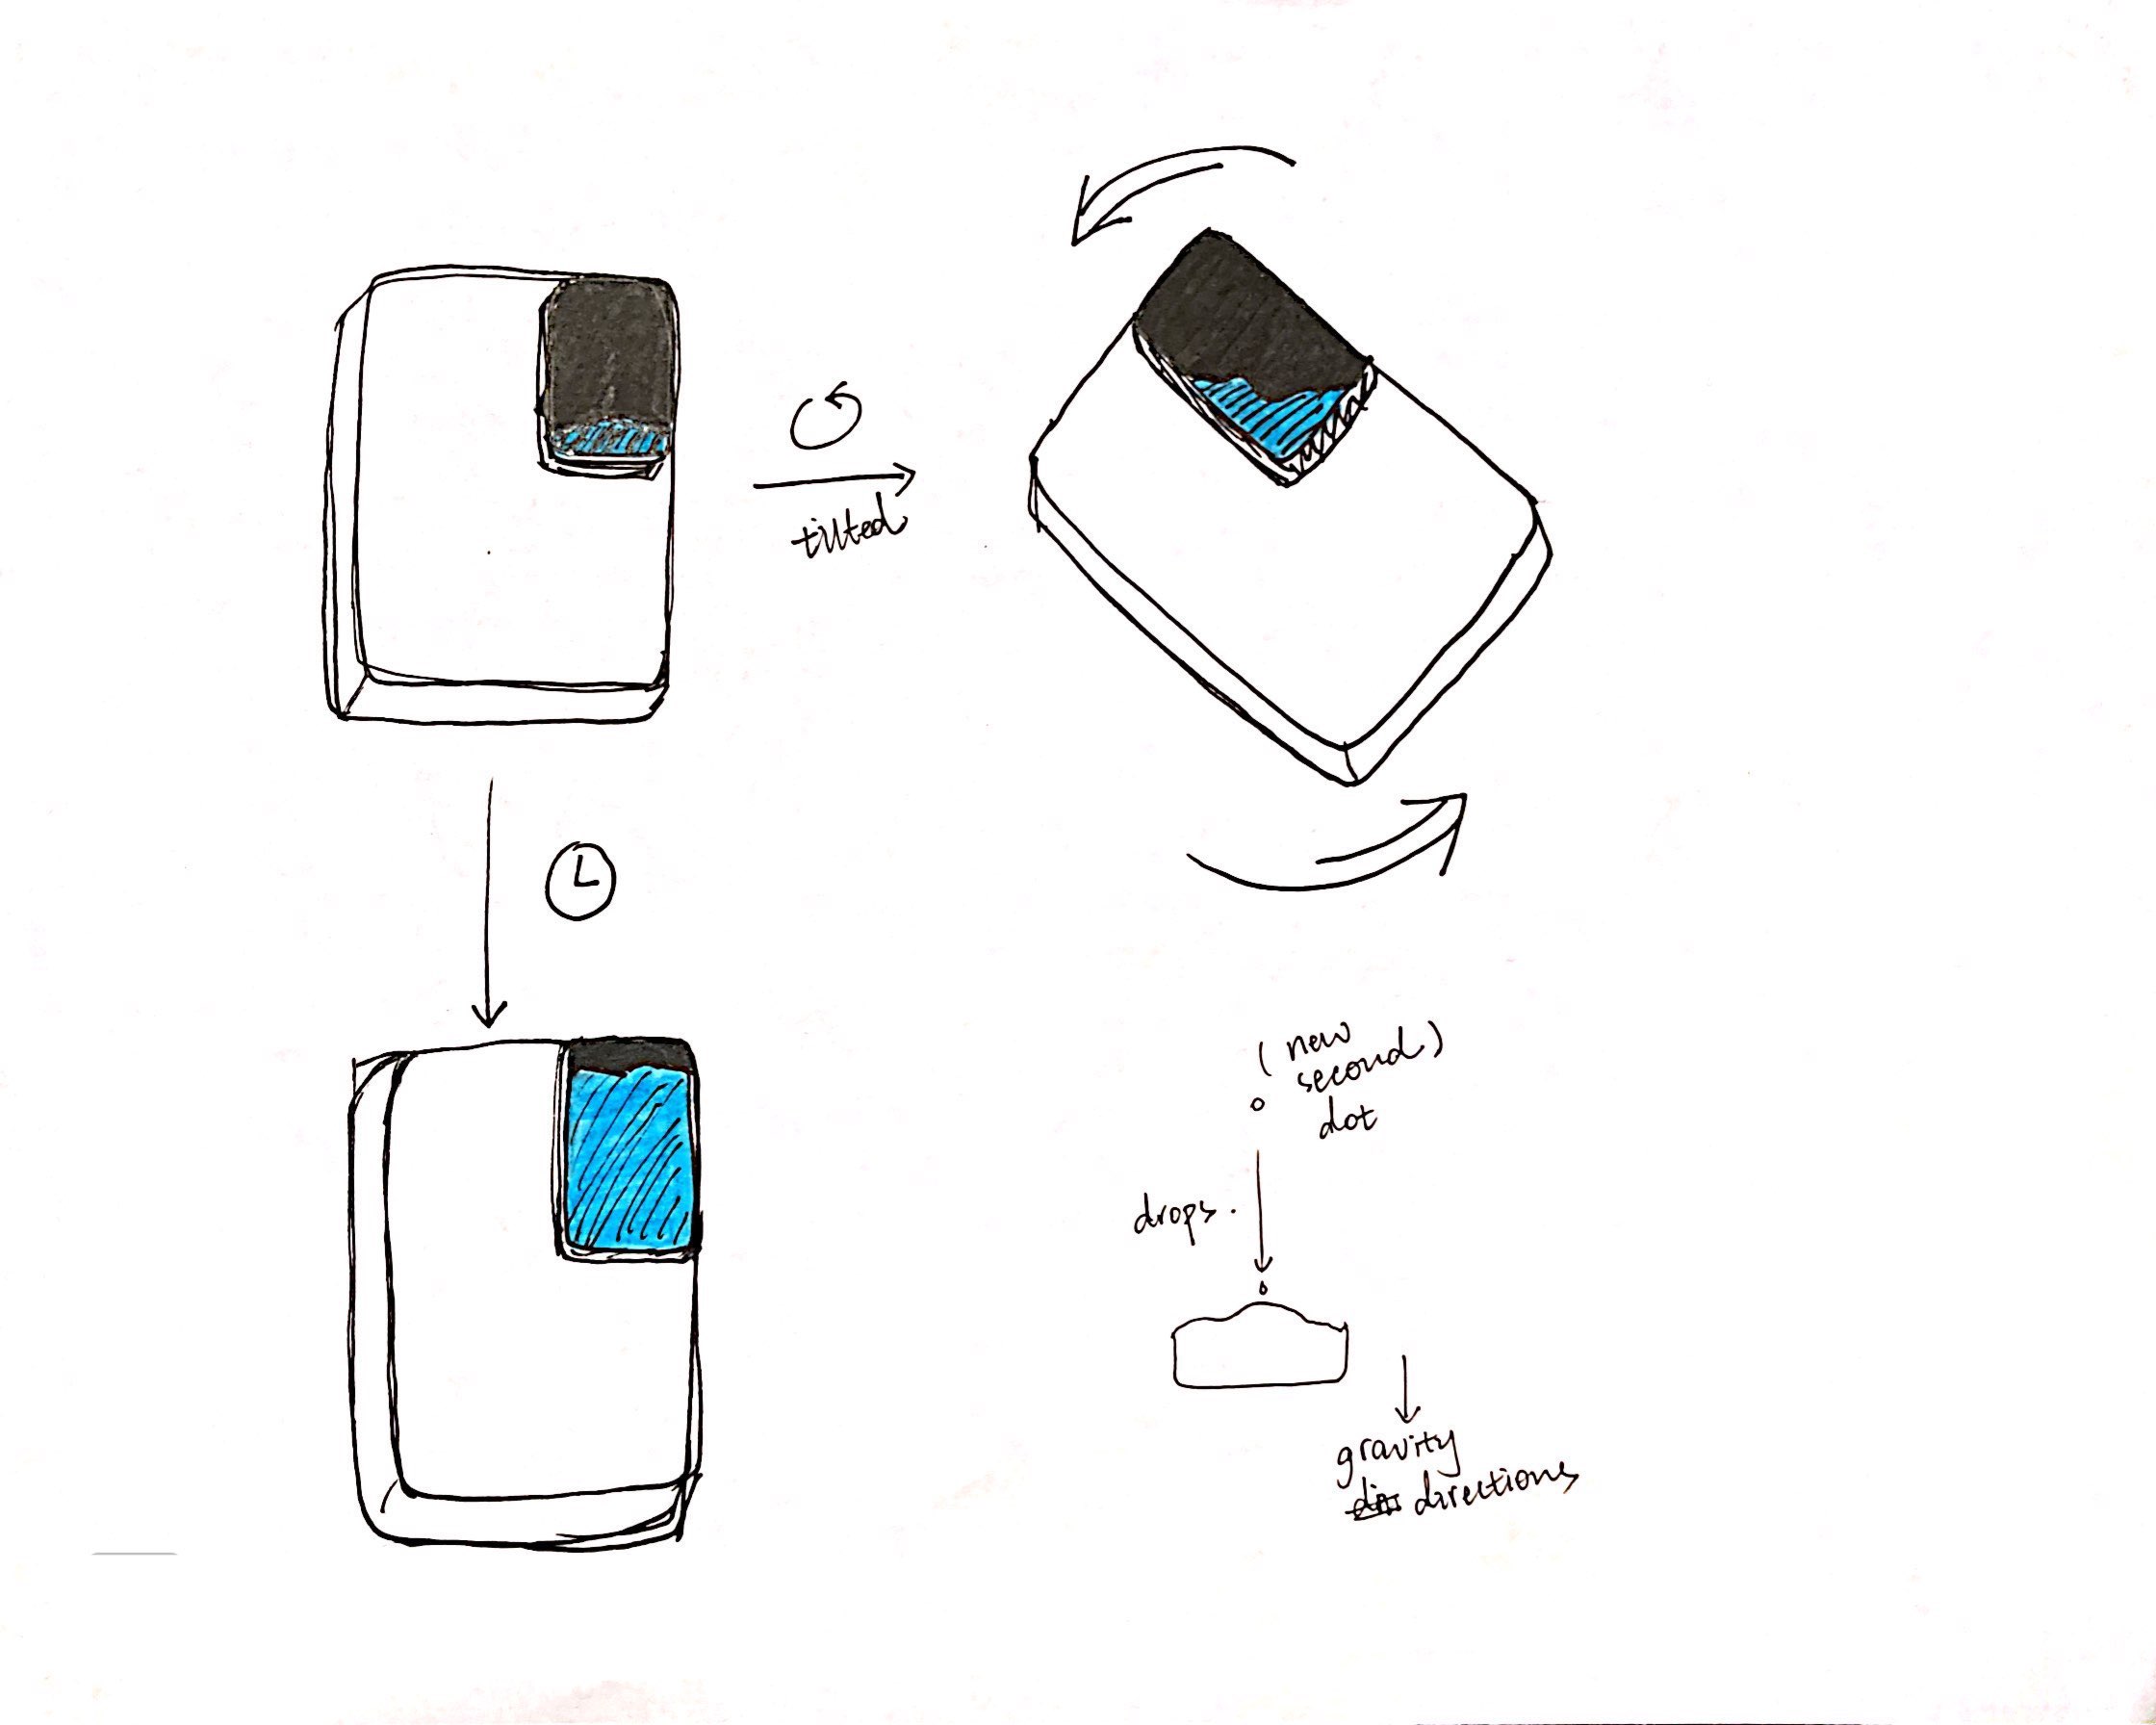 tilted
(new
second)
dot
drops.
gravity
directions